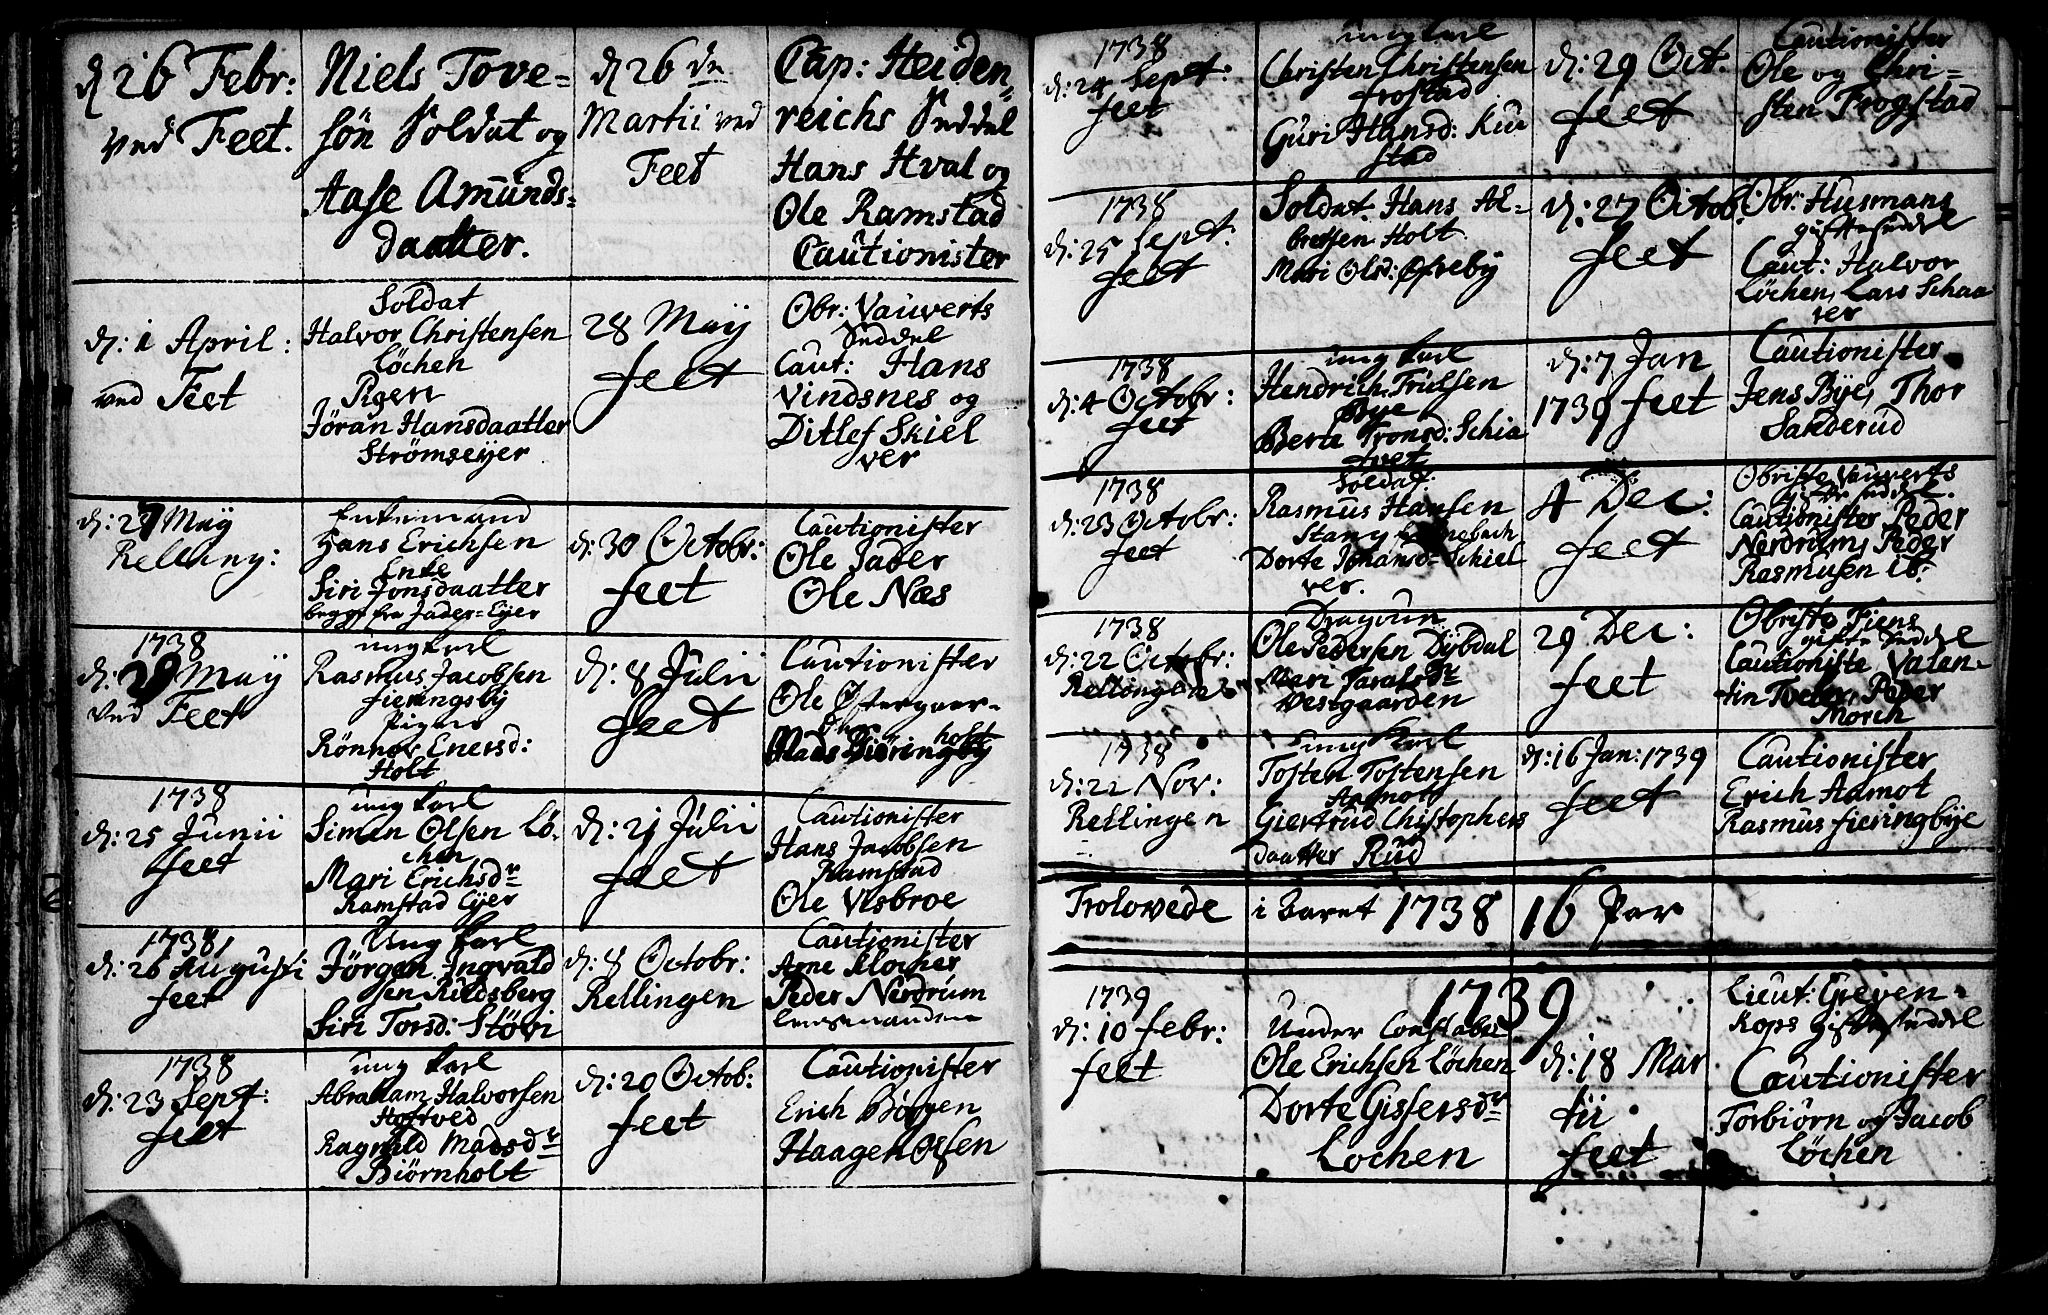 d 26 Febr:
ved Feet.
Niels Tove=
søn Soldat og
Aase Amunds=
daatter.
d 26 dn
Martii ved
Feet
Cap: Heiden=
reichs Seddel
Hans Hval og
Ole Ramstad
Cautionister
d: 1 April:
ved Feet
Soldat
Halvor Christensen
Løchen
Pigen
Jøran Hansdaatter
Strømseyer
28 Maÿ
feet
Obr: Vauverts
Seddel
Caut: Hans
Vindsnes og
Ditlef Skiel
ver
d: 27 Maÿ
Relling:
Enkemand
Hans Erichsen
Enke
Siri Jonsdaatter
begge fra Jader=Eyer
d: 30 Octobr:
feet
Cautionister
Ole Jader
Ole Næs
1738
d: 29 Maÿ
ved Feet
ung karl
Rasmus Jacobsen
fieringsby
Pigen
Rønnov Enersd:
Holt
d: 8 Julii
feet
Cautionister
Ole Østergaar=
holt
Mads fieringby
1738
d: 25 Junii
feet
ung karl
Simen Olsen Lø-
chen
Mari Erichsdr
Ramstad Eyer
d: 21 Julii
feet
Cautionister
Hans Jacobsen
Ramstad
Ole Visbroe
1738
d: 26 Augusti
feet
Ung karl
Jørgen Ingvald
sen Rudsberg
Siri Torsd: Støvi
d: 8 Octobr:
Rellingen
Cautionister
Arne Klocher
Peder Nerdrum
Lensmanden
1738
d: 23 Sept:
feet
ung karl
Abraham Halvorsen
Hofsved
Ragnild Madsdr
Biørnholt
d: 20 Octob:
feet
Cautionister
Erich Børgen
Haagen Olsen
1738
d: 24 Sept:
feet
ung karl
Christen Christensen
frostad
Guri Hansd: Kiu
stad
d: 29 Oct.
feet
Cautionister
Ole og Chri=
sten Frogstad
1738
d: 25 Sept:
feet
Soldat Hans Al=
bretsen Holt.
Mari Olsd: Øfreby
d: 27 Octob:
feet
Obr: Husmans
gifteseddel
Caut: Halvor
Løchen, Lars Schaa
ver
1738
d: 4 Octobr:
feet
ung karl
Hendrich Trulsen
Bye
Berte Tronsd: Schia
tvet
d: 7 Jan
1739 feet
Cautionister
Jens Bÿe, Thor
Sanderud
1738
d: 23 Octobr:
feet
Soldat
Rasmus Hansen
Dorte Johansd: Skiel
ver.
4 Dec:
feet
Obriste Vauverts
gifte seddel.
Cautionister Peder
Nerdrum, Peder
Rasmusen ib:
1738
d: 22 Octobr:
Rellingen
Dragoun
Ole Pedersen Dÿbdal
Mari Taralsdr
Vestgaarden
29 Dec:
feet
Obriste Fiens
gifte seddel
Cautioniste Valen=
tin Toder, Peder
Morch
1738
d: 22 Nov:
Rellingen
ung karl
Tosten Tostensen
Aamot
Giertrud Chistophers
daatter Rud
d: 16 Jan: 1739
feet
Cautionister
Erich Aamot
Rasmus fieringbye
Trolovede i Aaret 1738 16 Par
1739
1739
d: 10 febr:
feet
Under Constabel
Ole Erichsen Løchen
Dorte Gissersdr
Lochen
d: 18 Mar
tii
feet
Lieut: Greven=
kops giftesseddel
Cautionister
Torbiørn og Jacob
Løchen